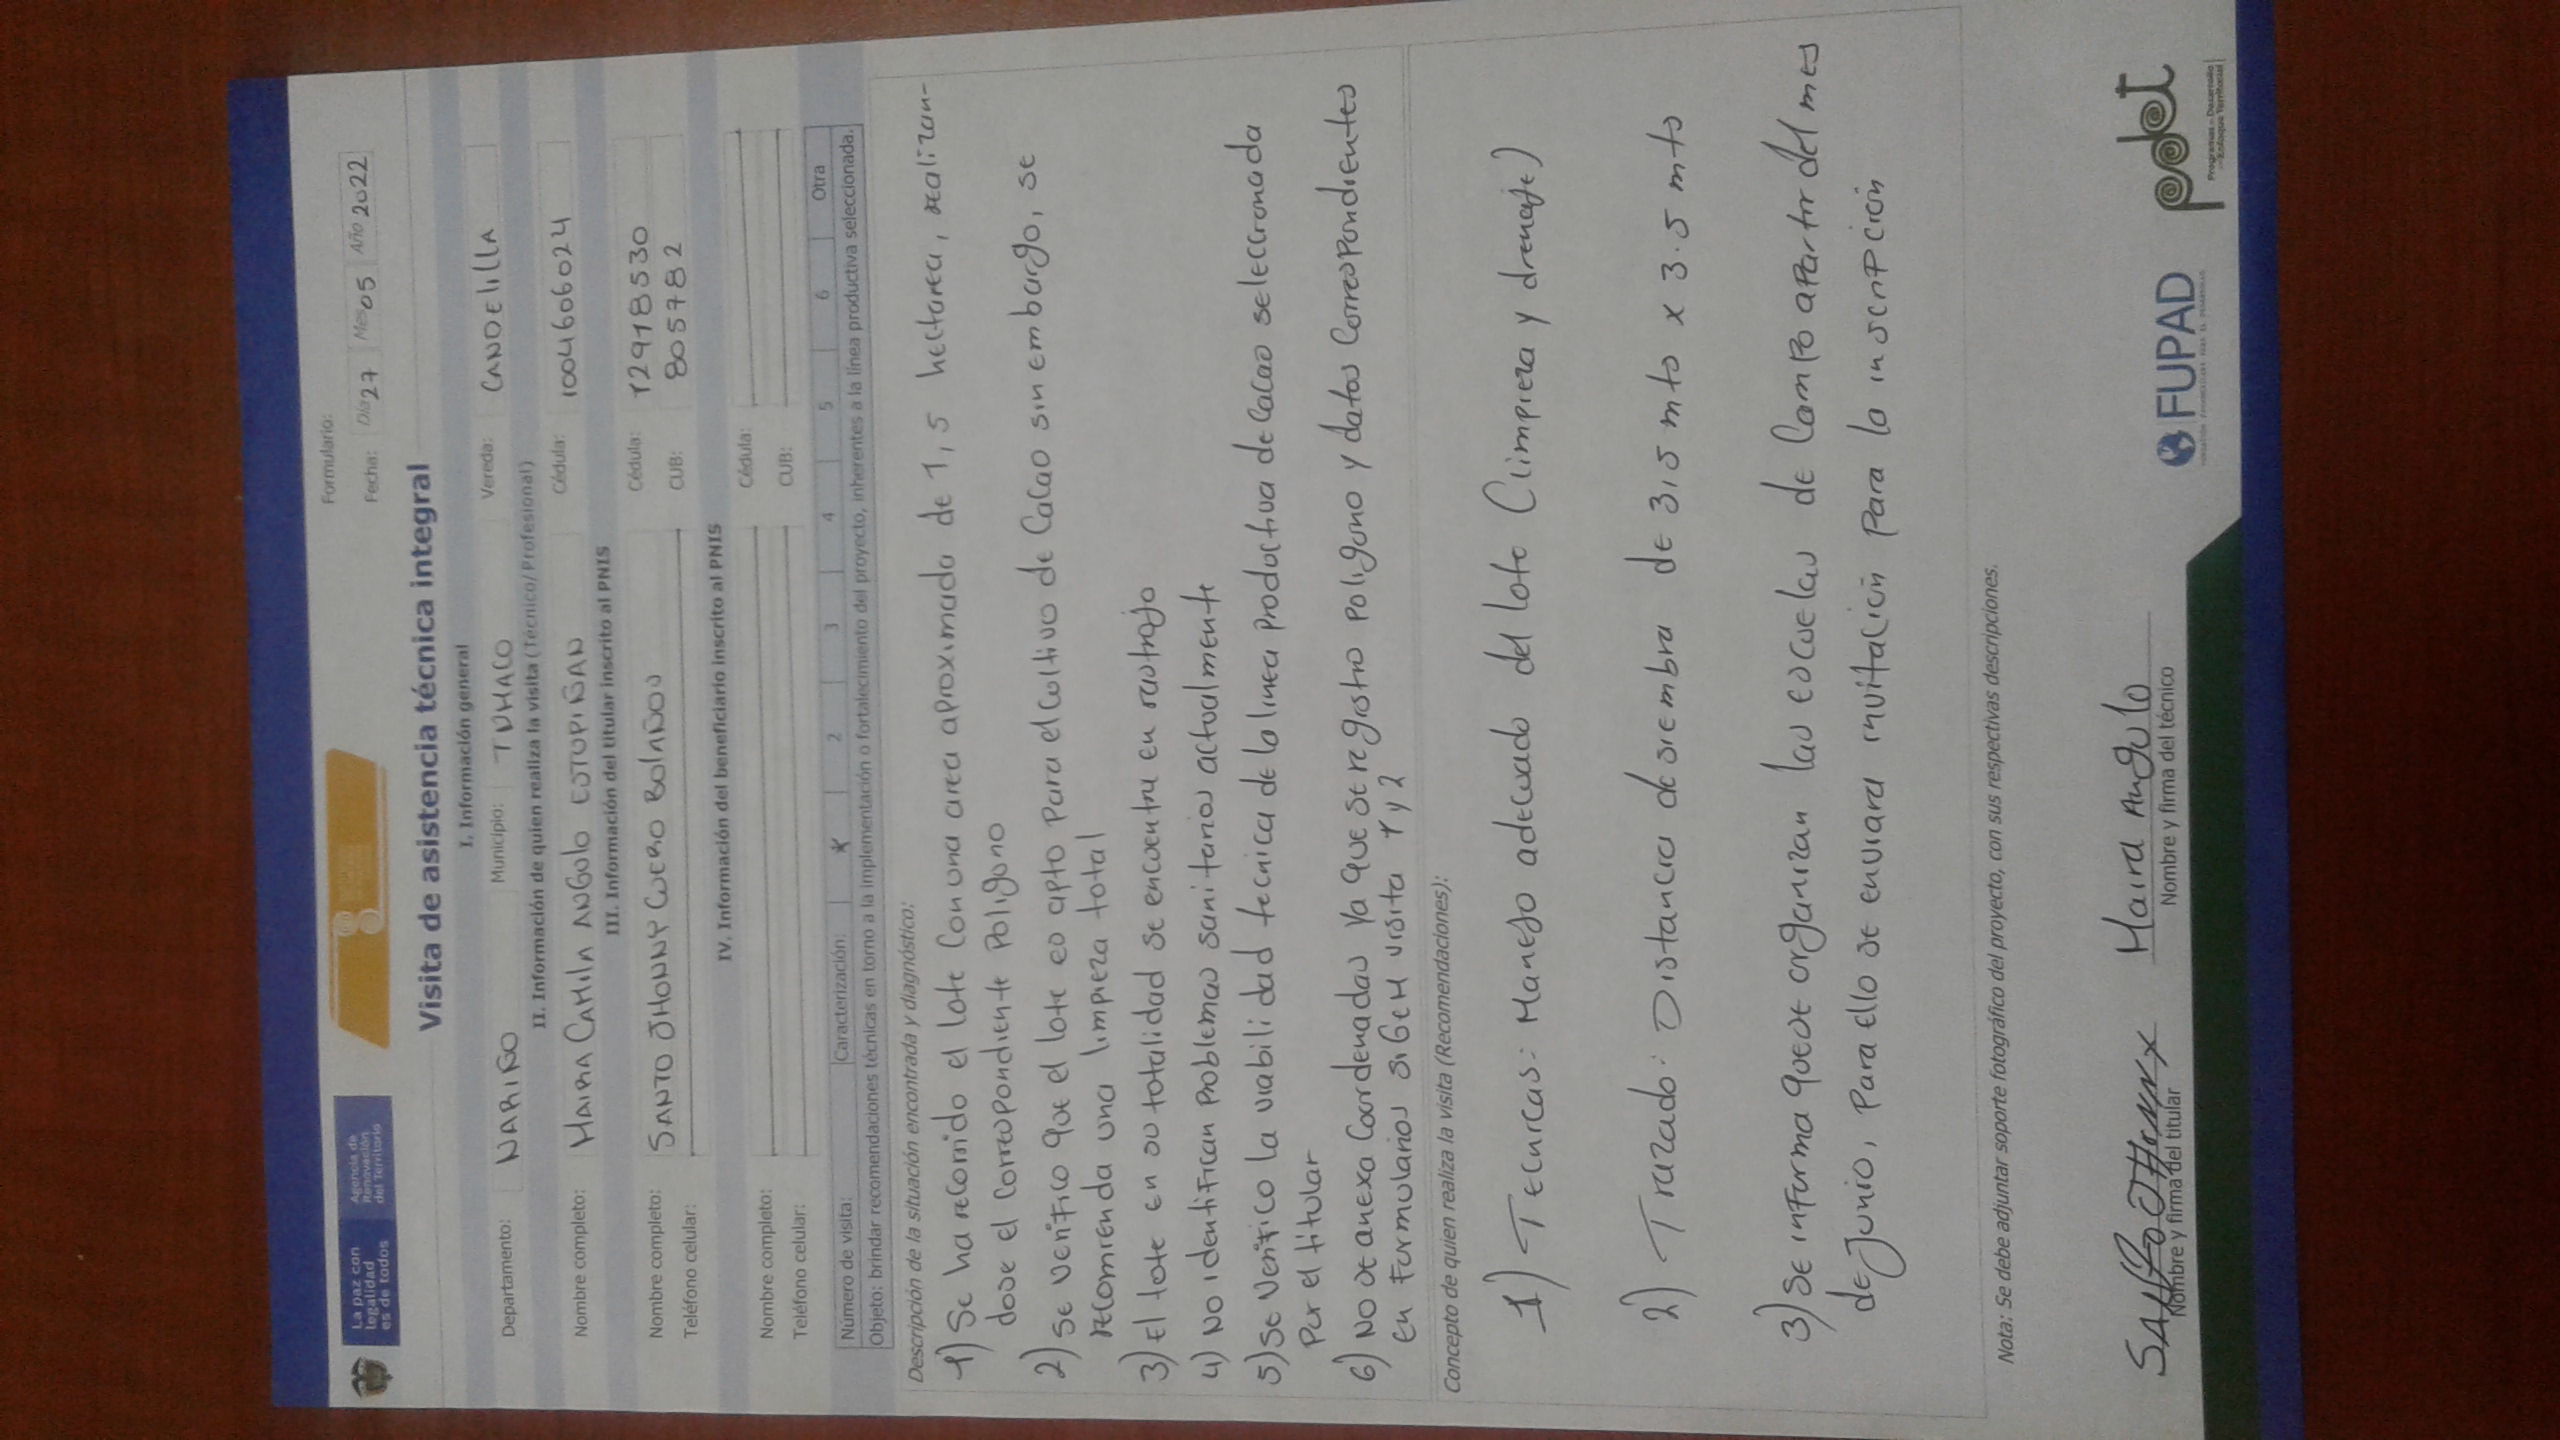 La paz con
legalidad
es de todos
Agencia de
Renovación
del Territorio
Formulario:
Fecha: Día 27 Mes 05 Año 2022
Visita de asistencia técnica integral
I. Información general
Departamento: NARIÑO Municipio: TUMACO Vereda: CANDELILLA
II. Información de quien realiza la visita (Técnico/Profesional)
Nombre completo: MAIRA CAMILA ANGULO ESTUPIÑAN Cédula: 1004606024
III. Información del titular inscrito al PNIS
Nombre completo: SANTO JHONNY CUERO BOLAÑOS Cédula: 12918530
Teléfono celular: CUB: 805782
IV. Información del beneficiario inscrito al PNIS
Nombre completo: Cédula:
Teléfono celular: CUB:
Número de visita: Caracterización: 1 2 3 4 5 6 Otra
Objeto: brindar recomendaciones técnicas en torno a la implementación o fortalecimiento del proyecto, inherentes a la línea productiva seleccionada.
Descripción de la situación encontrada y diagnóstico:
1) Se ha recorrido el lote con una area aproximada de 1,5 hectarea, realizan-
dose el correspondiente poligono
2) se verifico que el lote es apto para el cultivo de cacao sin embargo, se
recomienda una limpieza total
3) El lote en su totalidad se encuentra en rastrojo
4) No identifican problemas sanitarios actualmente
5) Se verifico la viabilidad tecnica de la linea productiva de cacao seleccionada
por el titular
6) No se anexa coordenadas ya que se registro poligono y datos correspondientes
en formularios SIGEM visita 1 y 2
Concepto de quien realiza la visita (Recomendaciones):
1) Tecnicas: Manejo adecuado del lote (limpieza y drenaje)
2) Trazado: Distancia de siembra de 3,5 mts x 3.5 mts
3) Se informa que se organizan las escuelas de campo apartir del mes
de junio, para ello se enviara invitación para la inscripción
Nota: Se debe adjuntar soporte fotográfico del proyecto, con sus respectivas descripciones.
Maira Angulo
Nombre y firma del titular Nombre y firma del técnico
FUPAD
pdet
Programas de Desarrollo
con Enfoque Territorial